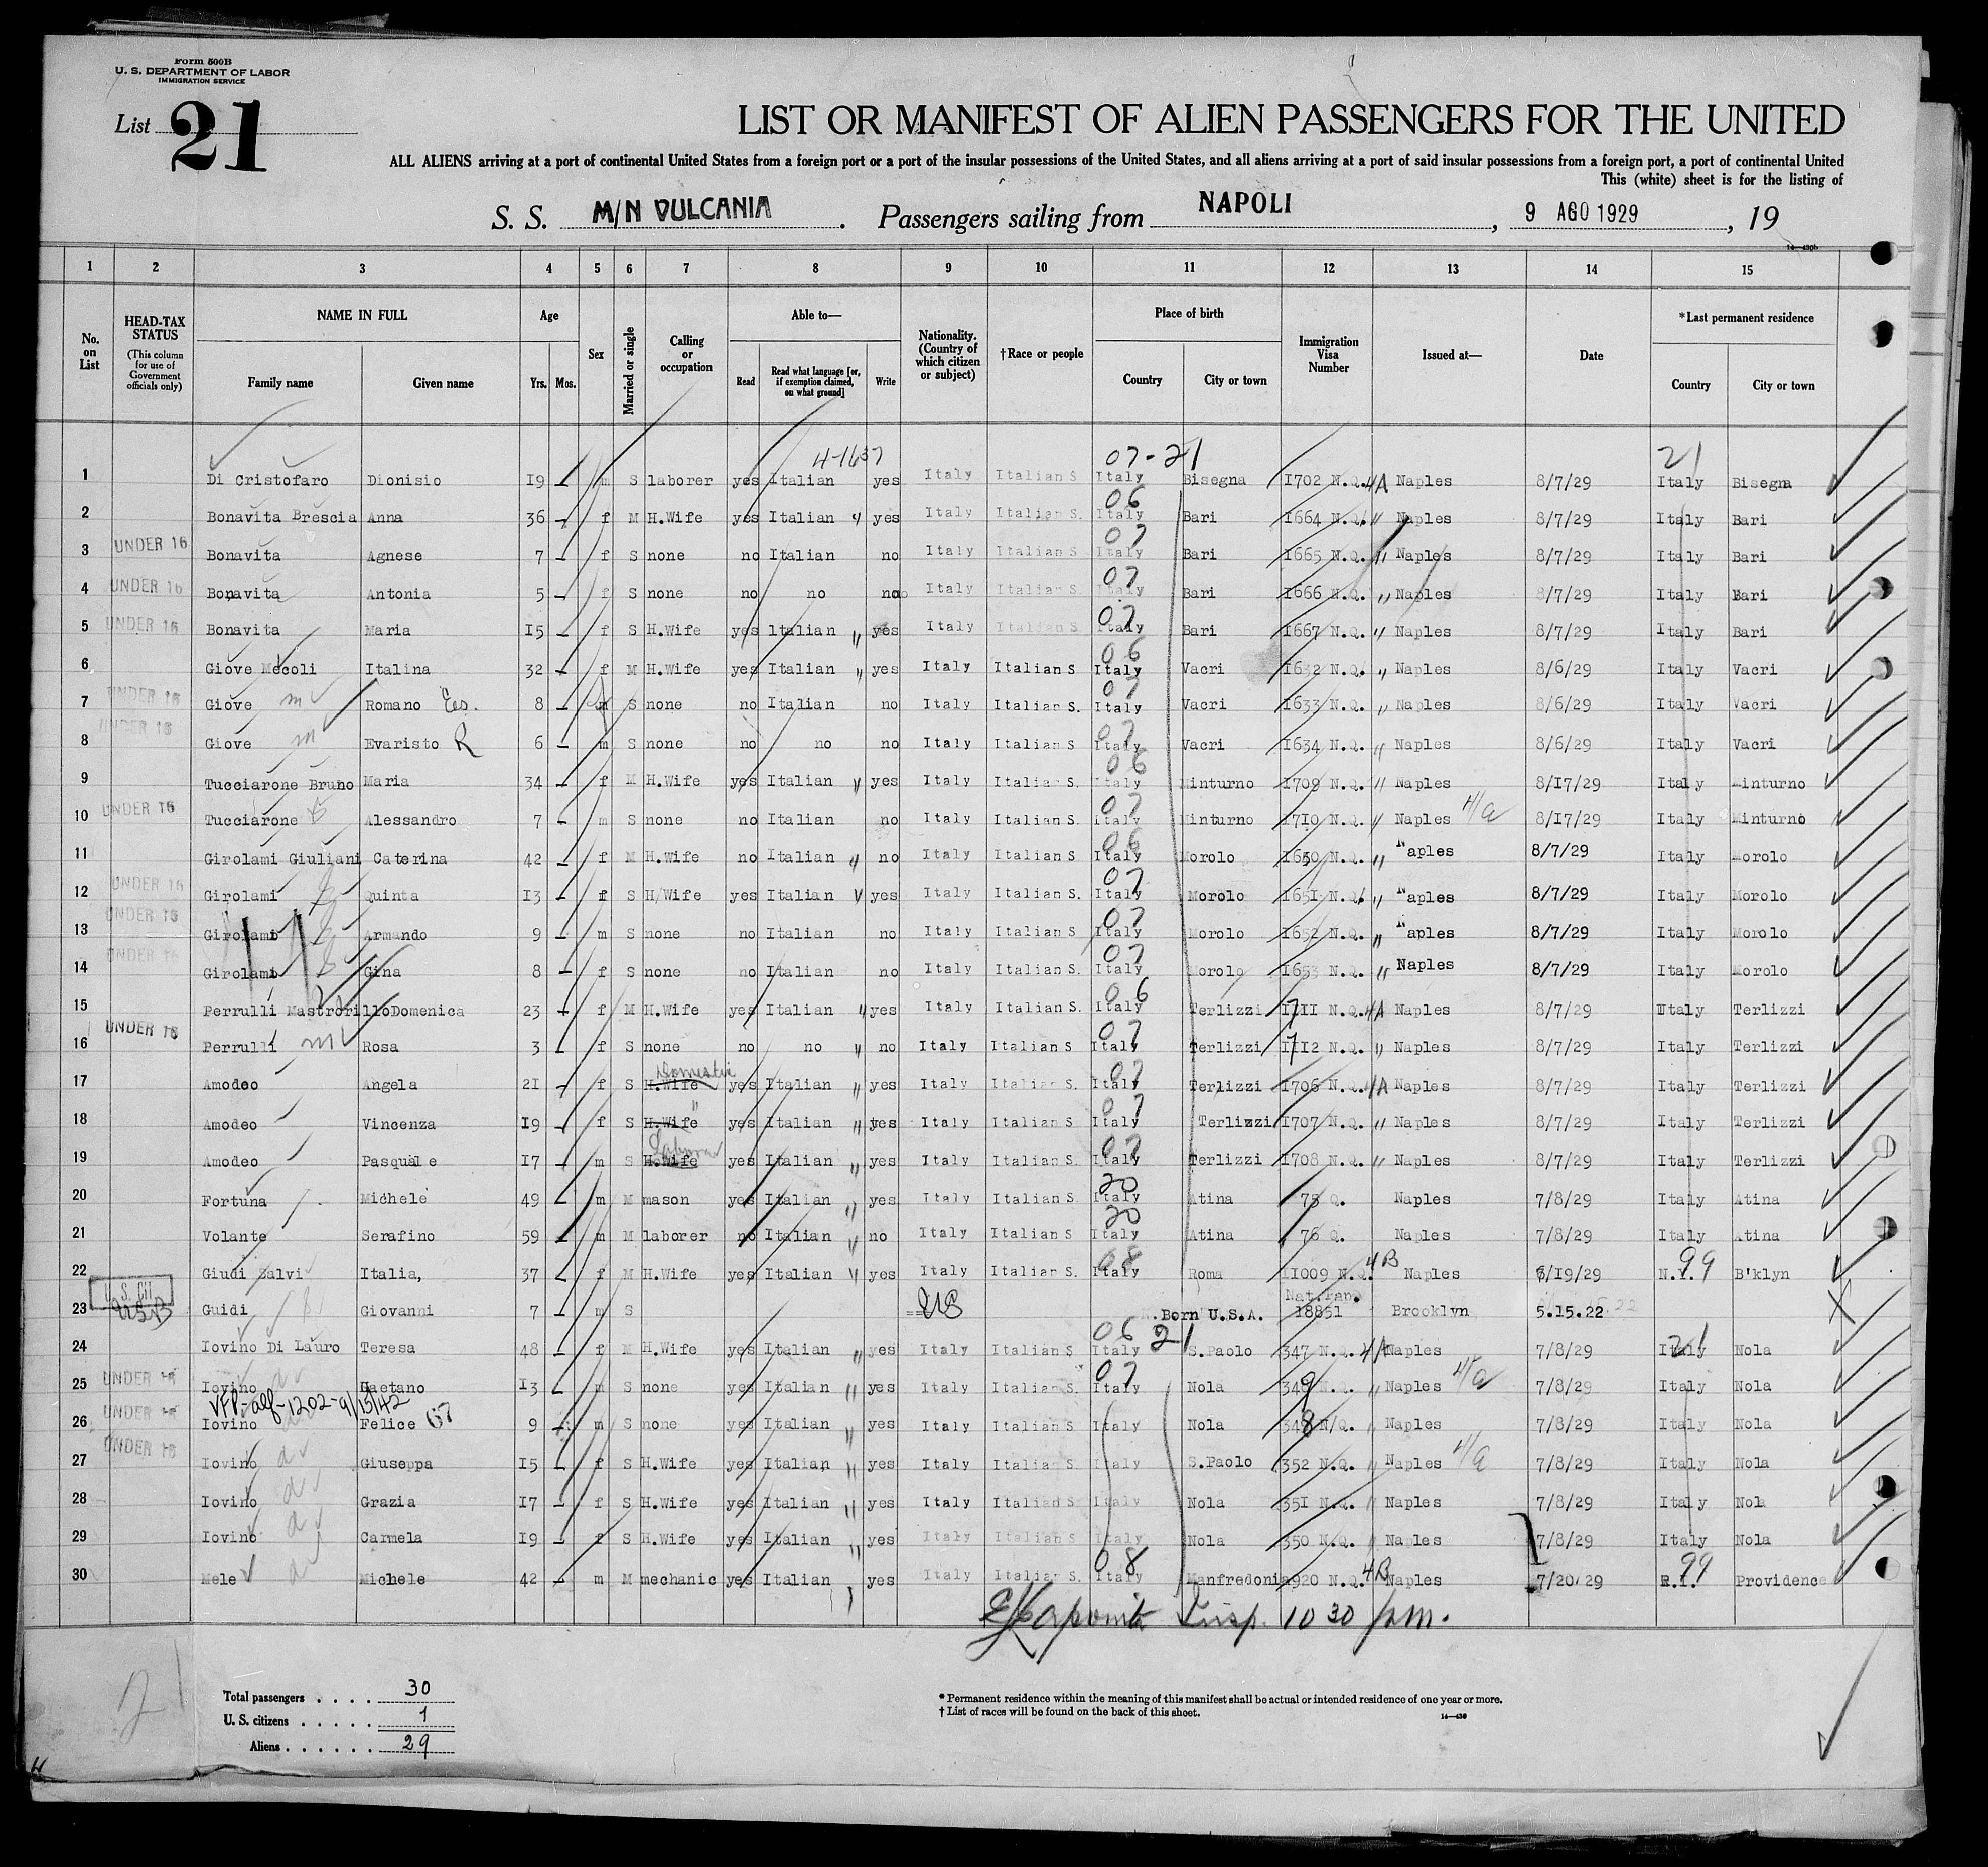 Form 500B
U. S. DEPARTMENT OF LABOR
IMMIGRATION SERVICE
List 21
LIST OR MANIFEST OF ALIEN PASSENGERS FOR THE UNITED
ALL ALIENS arriving at a port of continental United States from a foreign port or a port of the insular possessions of the United States, and all aliens arriving at a port of said insular possessions from a foreign port, a port of continental United
This (white) sheet is for the listing of
S. S. M/N VULCANIA. Passengers sailing from NAPOLI, 9 AGO 1929, 19
14—430b
1 2 3 4 5 6 7 8 9 10 11 12 13 14 15
No. on List HEAD-TAX STATUS (This column for use of Government officials only) NAME IN FULL Family name Given name Age Yrs. Mos. Sex Married or single Calling or occupation Able to— Read Read what language [or, if exemption claimed, on what ground] Write Nationality. (Country of which citizen or subject) †Race or people Place of birth Country City or town Immigration Visa Number Issued at— Date *Last permanent residence Country City or town
4-1637 07-21 21
1 Di Cristofaro Dionisio 19 – m S laborer yes Italian yes Italy Italian S Italy Bisegna 1702 N.Q. 4A Naples 8/7/29 Italy Bisegna
06
2 Bonavita Brescia Anna 36 – f M H.Wife yes Italian " yes Italy Italian S. Italy Bari 1664 N.Q. " Naples 8/7/29 Italy Bari
07
3 UNDER 16 Bonavita Agnese 7 – f S none no Italian no Italy Italian S Italy Bari 1665 N.Q. " Naples 8/7/29 Italy Bari
07
4 UNDER 16 Bonavita Antonia 5 – f S none no no no Italy Italian S. Italy Bari 1666 N.Q. " Naples 8/7/29 Italy Bari
07
5 UNDER 16 Bonavita Maria 15 – f S H.Wife yes Italian " yes Italy Italian S Italy Bari 1667 N.Q. " Naples 8/7/29 Italy Bari
06
6 Giove Mecoli Italina 32 – f M H.Wife yes Italian " yes Italy Italian S Italy Vacri 1632 N.Q. " Naples 8/6/29 Italy Vacri
07
7 UNDER 16 Giove m Romano 8 – S none no Italian no Italy Italian S. Italy Vacri 1633 N.Q. " Naples 8/6/29 Italy Vacri
07
8 UNDER 16 Giove m Evaristo R 6 – m S none no no no Italy Italian S Italy Vacri 1634 N.Q. " Naples 8/6/29 Italy Vacri
06
9 Tucciarone Bruno Maria 34 – f M H.Wife yes Italian " yes Italy Italian S. Italy Minturno 1709 N.Q. " Naples 8/17/29 Italy Minturno
07
10 UNDER 16 Tucciarone B Alessandro 7 – m S none no Italian no Italy Italian S. Italy Minturno 1710 N.Q. " Naples 4/a 8/17/29 Italy Minturno
06
11 Girolami Giuliani Caterina 42 – f M H.Wife no Italian " no Italy Italian S Italy Morolo 1650 N.Q. " Naples 8/7/29 Italy Morolo
07
12 UNDER 16 Girolami Quinta 13 – f S H/Wife yes Italian " yes Italy Italian S. Italy Morolo 1651 N.Q. " Naples 8/7/29 Italy Morolo
07
13 UNDER 16 Girolami Armando 9 – m S none no Italian no Italy Italian S Italy Morolo 1652 N.Q. " Naples 8/7/29 Italy Morolo
07
14 UNDER 16 Girolami Gina 8 – f S none no Italian no Italy Italian S. Italy Morolo 1653 N.Q. " Naples 8/7/29 Italy Morolo
06
15 Perrulli Mastrorillo Domenica 23 – f M H.Wife yes Italian " yes Italy Italian S. Italy Terlizzi 1711 N.Q. 4A Naples 8/7/29 Italy Terlizzi
07
16 UNDER 16 Perrulli m Rosa 3 – f S none no no " no Italy Italian S Italy Terlizzi 1712 N.Q. " Naples 8/7/29 Italy Terlizzi
Domestic 07
17 Amodeo Angela 21 – f S H.Wife yes Italian " yes Italy Italian S. Italy Terlizzi 1706 N.Q. 4A Naples 8/7/29 Italy Terlizzi
" 07
18 Amodeo Vincenza 19 – f S H.Wife yes Italian " yes Italy Italian S. Italy Terlizzi 1707 N.Q. " Naples 8/7/29 Italy Terlizzi
Laborer 07
19 Amodeo Pasquale 17 – m S H.Wife yes Italian " yes Italy Italian S. Italy Terlizzi 1708 N.Q. " Naples 8/7/29 Italy Terlizzi
20
20 Fortuna Michele 49 – m M mason yes Italian " yes Italy Italian S. Italy Atina 75 Q. Naples 7/8/29 Italy Atina
20
21 Volante Serafino 59 – m M laborer no Italian " no Italy Italian S Italy Atina 76 Q. Naples 7/8/29 Italy Atina
08 99
22 Giudi Salvi Italia, 37 – f M H.Wife yes Italian " yes Italy Italian S. Italy Roma 11009 N.Q. 4B Naples 6/19/29 N.Y. B'klyn
U.S. CIT. USB Nat.pap.
23 Guidi Giovanni 7 – m S US Born U.S.A. 18851 Brooklyn 5.15.22
06 21 21
24 Iovino Di Lauro Teresa 48 – f M H.Wife yes Italian " yes Italy Italian S Italy S.Paolo 347 N.Q. 4A Naples 7/8/29 Italy Nola
07
25 UNDER 16 Iovino Gaetano 13 – m S none yes Italian " yes Italy Italian S. Italy Nola 349 N.Q. " Naples 4/a 7/8/29 Italy Nola
VFP-alf-1202-9/15/42
26 UNDER 16 Iovino Felice 9 – m S none yes Italian " yes Italy Italian S. Italy Nola 348 N/Q. " Naples 7/8/29 Italy Nola
27 UNDER 16 Iovino Giuseppa 15 – f S H.Wife yes Italian " yes Italy Italian S. Italy S.Paolo 352 N.Q. " Naples 4/a 7/8/29 Italy Nola
28 Iovino Grazia 17 – f S H.Wife yes Italian " yes Italy Italian S Italy Nola 351 N.Q. " Naples 7/8/29 Italy Nola
29 Iovino Carmela 19 – f S H.Wife yes Italian " yes Italy Italian S Italy Nola 350 N.Q. " Naples 7/8/29 Italy Nola
08 99
30 Mele Michele 42 – m M mechanic yes Italian yes Italy Italian S. Italy Manfredonia 920 N.Q. 4B Naples 7/20/29 R.I. Providence
Insp. 10 30 pm.
21
Total passengers . . . . 30
U. S. citizens . . . . . 1
Aliens . . . . . . 29
* Permanent residence within the meaning of this manifest shall be actual or intended residence of one year or more.
† List of races will be found on the back of this sheet.
14—430